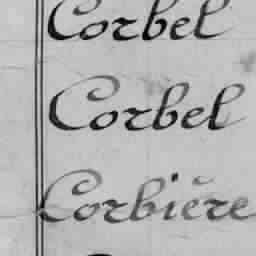 Corbel
Corbel
Corbière